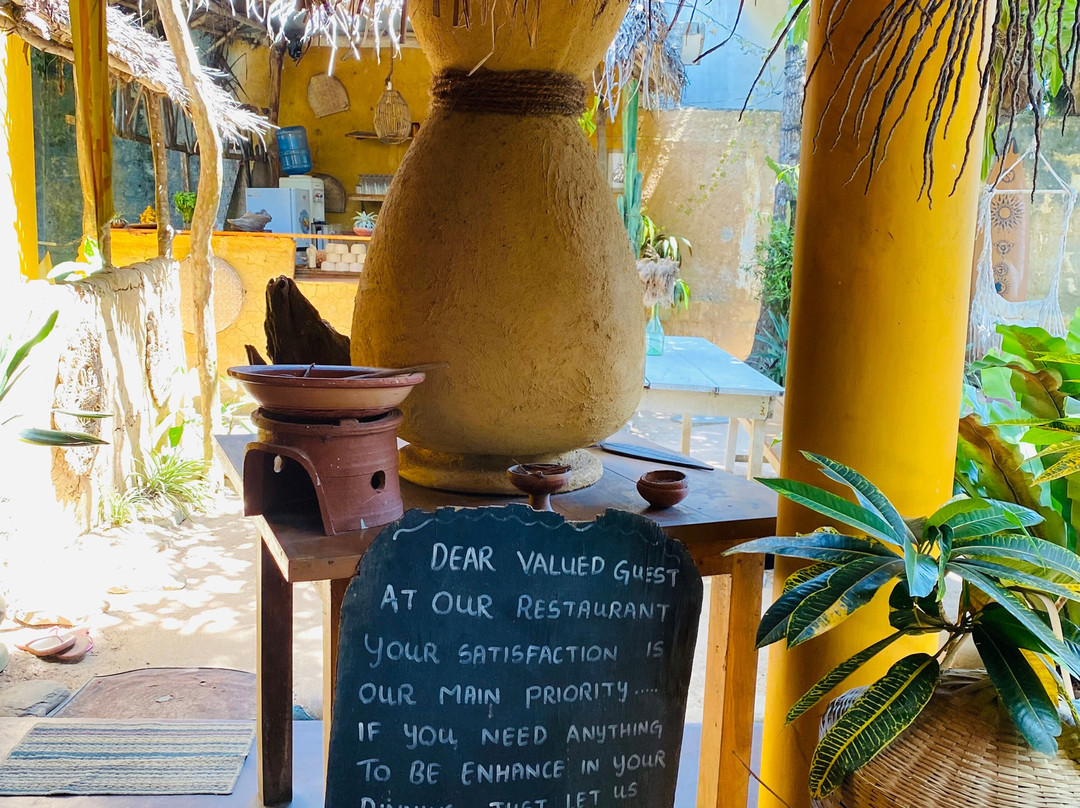 DEAR VALUED GUEST
AT OUR RESTAURANT
YOUR SATISFACTION IS
OUR MAIN PRIORITY.....
IF YOU NEED ANYTHING
TO BE ENHANCE IN YOUR
JUST LET US